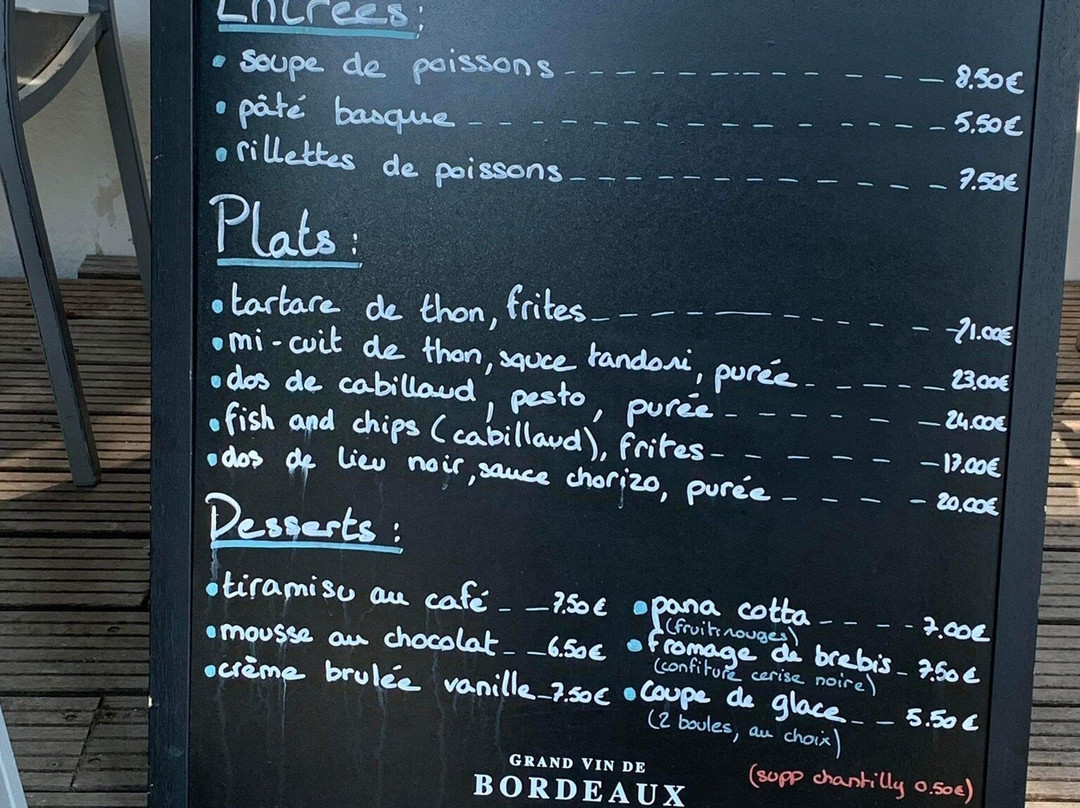 Entrées :
• soupe de poissons - - - - - - - - - - - - 8.50€
• pâté basque - - - - - - - - - - - - 5.50€
• rillettes de poissons - - - - - - - - - - - - 7.50€
Plats :
• tartare de thon, frites - - - - - - - - - - 21.00€
• mi-cuit de thon, sauce tandori, purée - - - - - - 23.00€
• dos de cabillaud, pesto, purée - - - - - - - 24.00€
• fish and chips (cabillaud), frites - - - - - - - 17.00€
• dos de lieu noir, sauce chorizo, purée - - - - - 20.00€
Desserts :
• tiramisu au café - - 7.50€
• mousse au chocolat - - 6.50€
• crème brulée vanille - 7.50€
• pana cotta - - - - 7.00€
(fruits rouges)
• fromage de brebis - 7.50€
(confiture cerise noire)
• coupe de glace - - - 5.50€
(2 boules, au choix)
(supp chantilly 0.50€)
GRAND VIN DE
BORDEAUX